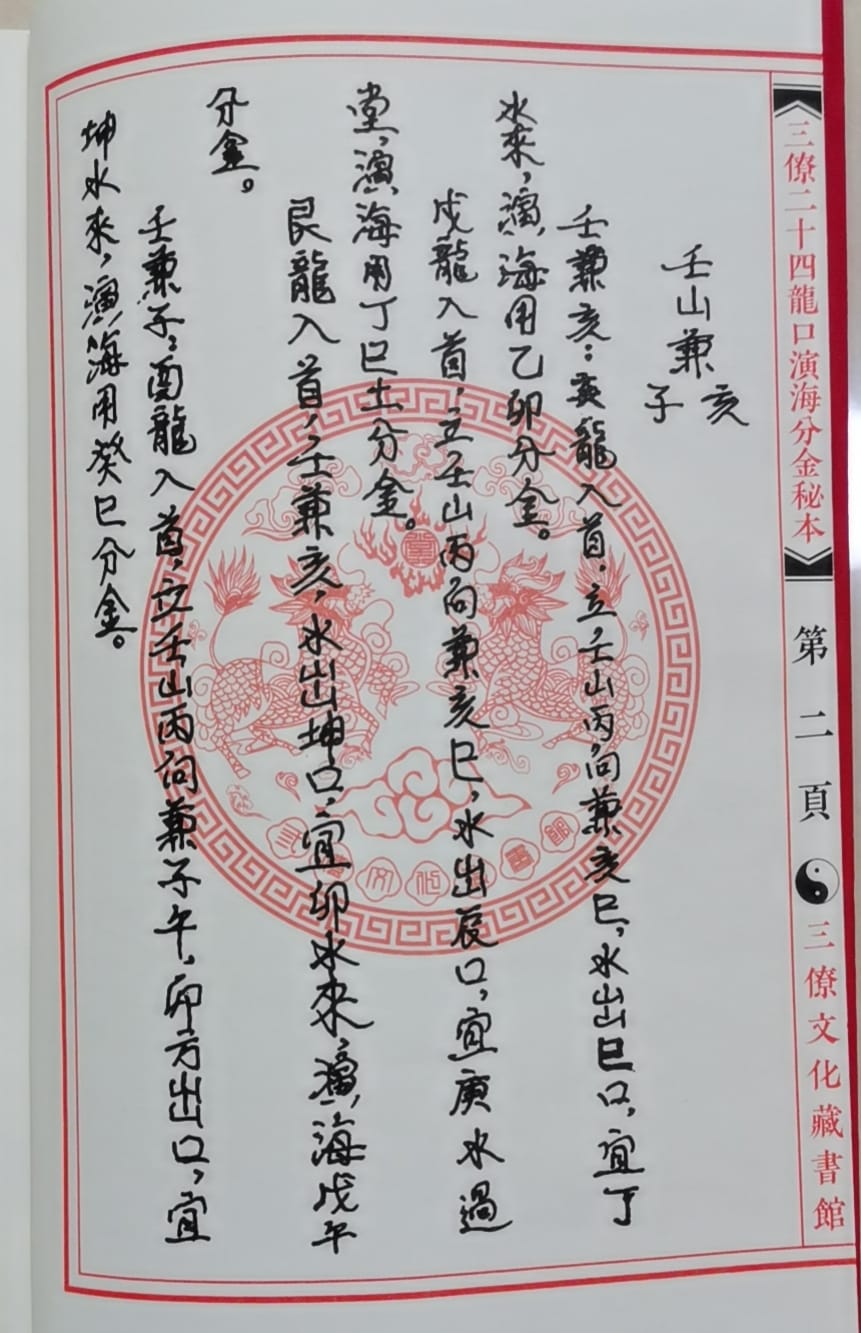 《三僚二十四龍口演海分金秘本》 第二頁 三僚文化藏書館
壬山兼亥
子
壬兼亥：亥龍入首，立壬山丙向兼亥巳，水出巳口，宜丁
水來，演海用乙卯分金。
戌龍入首，立壬山丙向兼亥巳，水出辰口，宜庚水過
堂，演海用丁巳土分金。
艮龍入首，壬兼亥，水出坤口，宜卯水來，演海戊午
分金。
壬兼子：酉龍入首，立壬山丙向兼子午，卯方出口，宜
坤水來，演海用癸巳分金。